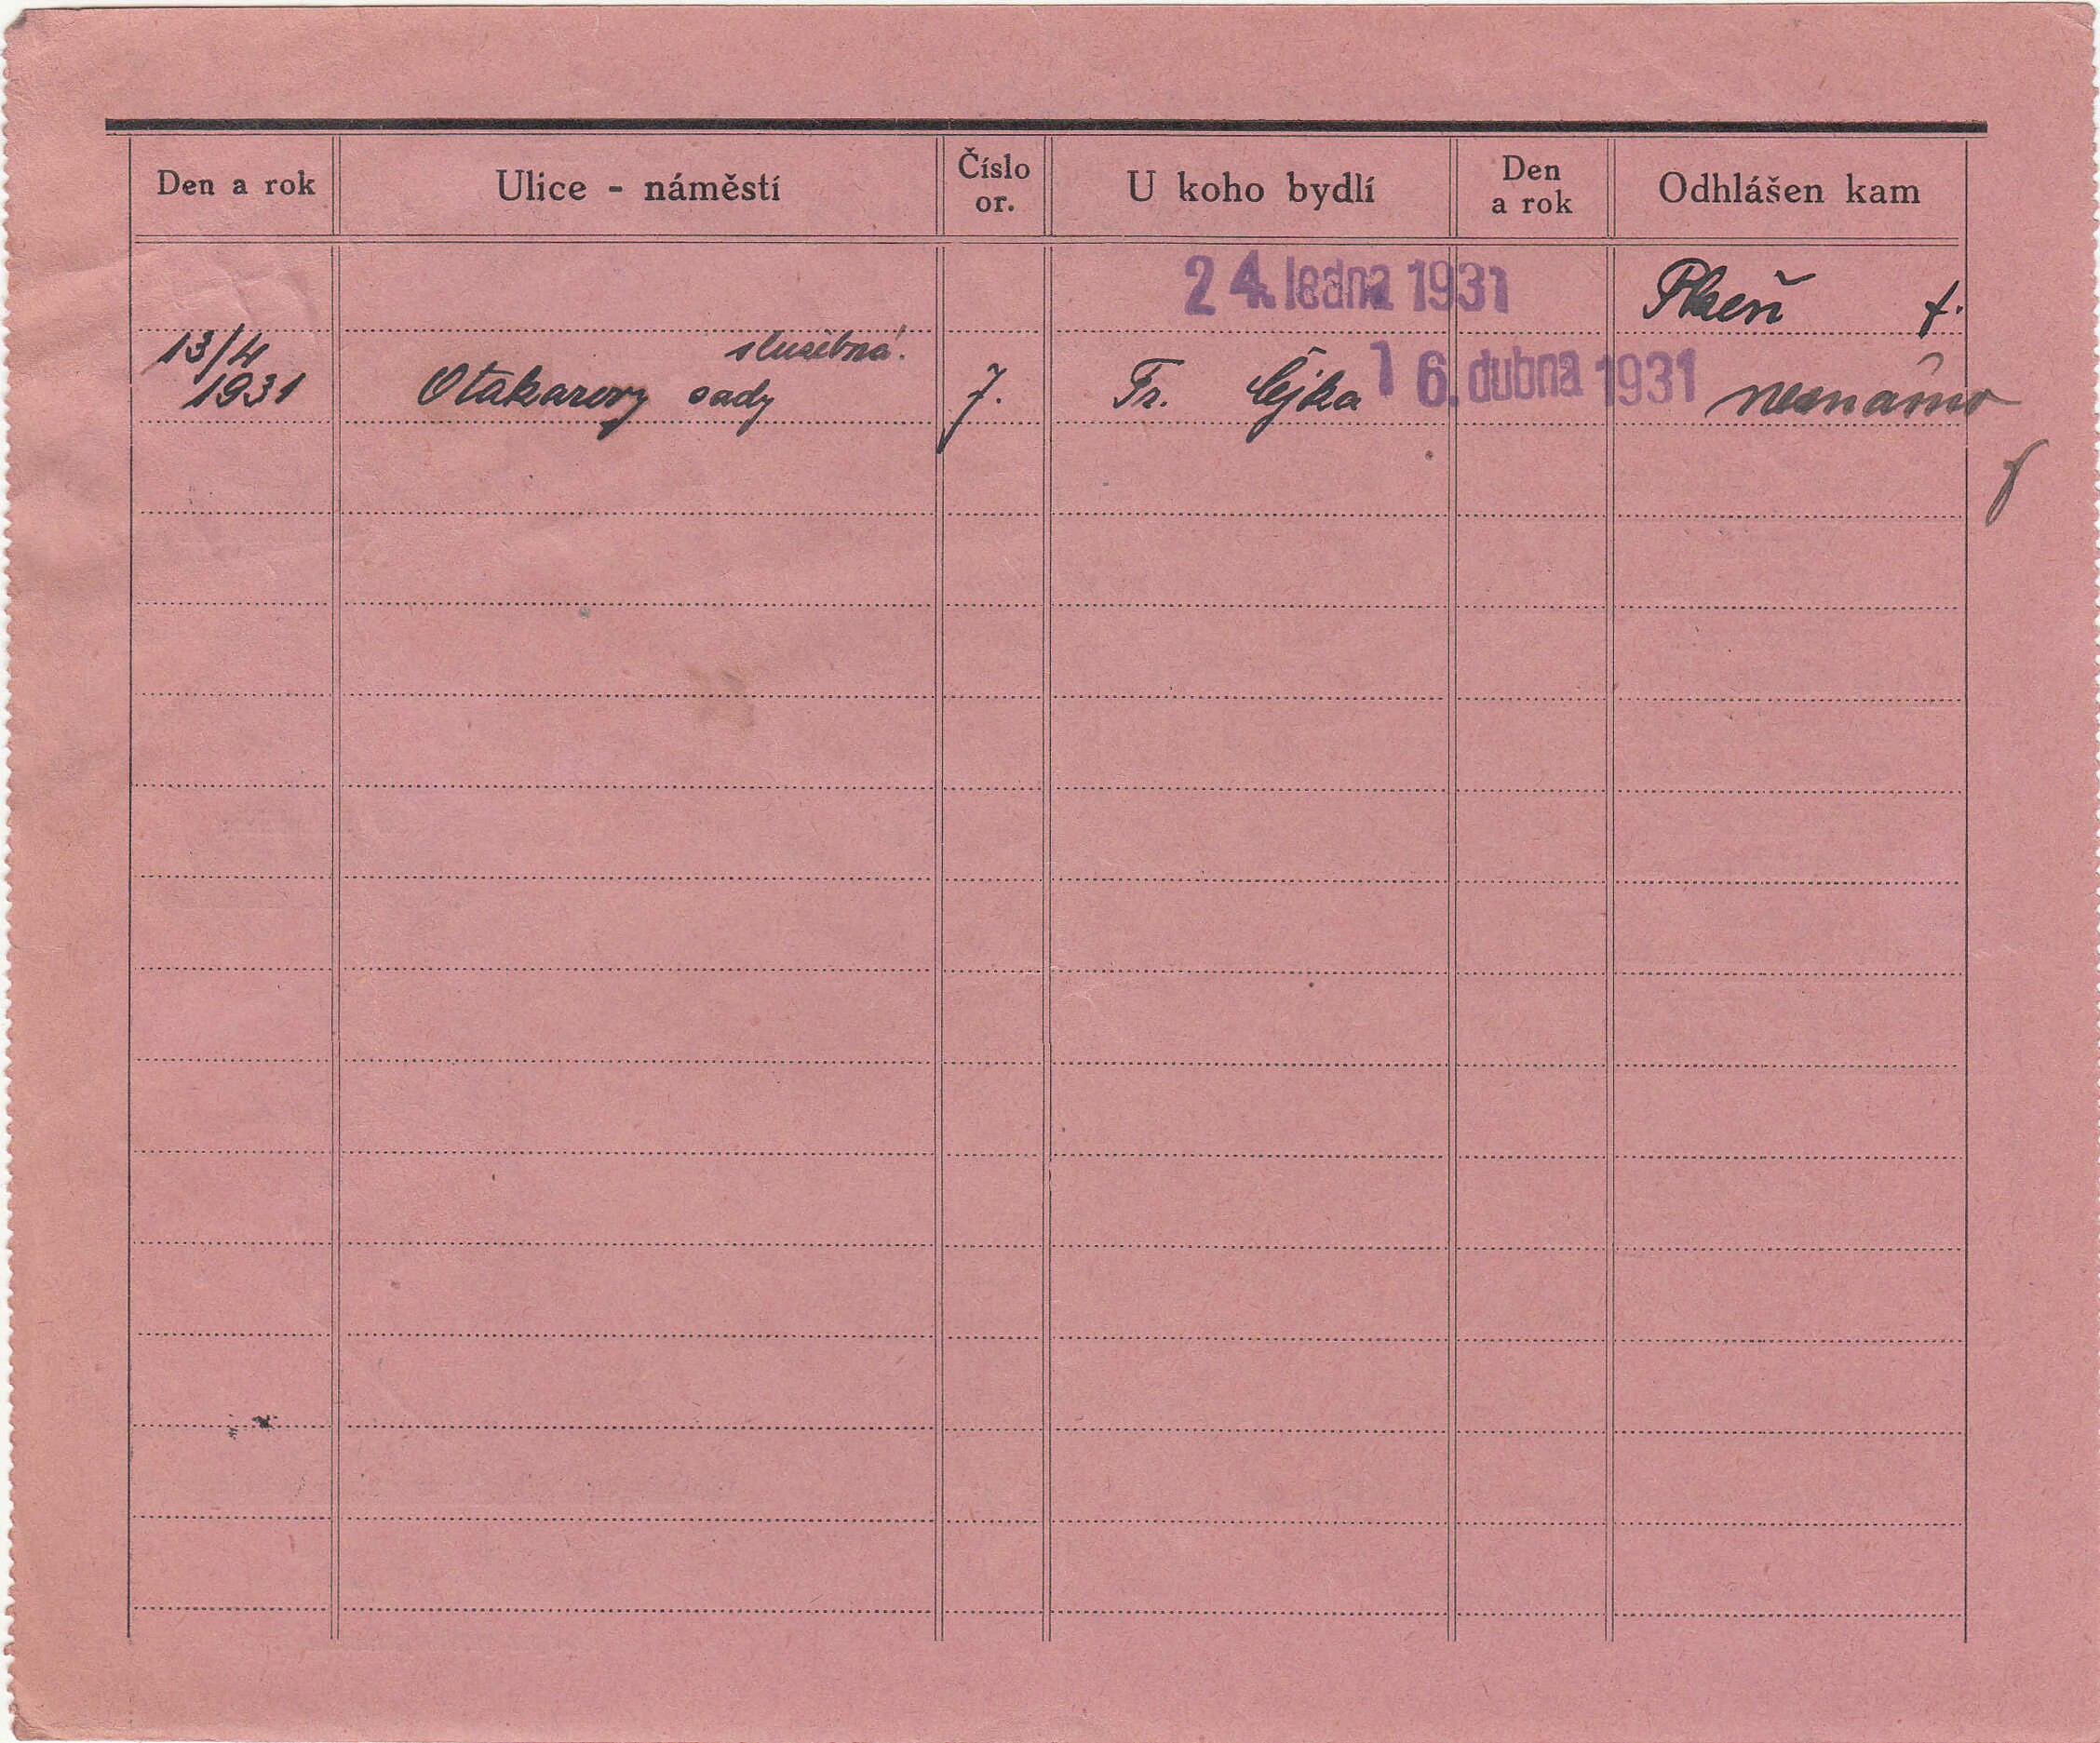 Den a rok Ulice - náměstí Číslo or. U koho bydlí Den a rok Odhlášen kam
24. ledna 1931 Plzeň f.
13/4 služebná.
1931 Otakarovy sady 7. Fr. Čejka 16. dubna 1931 neznámo
f